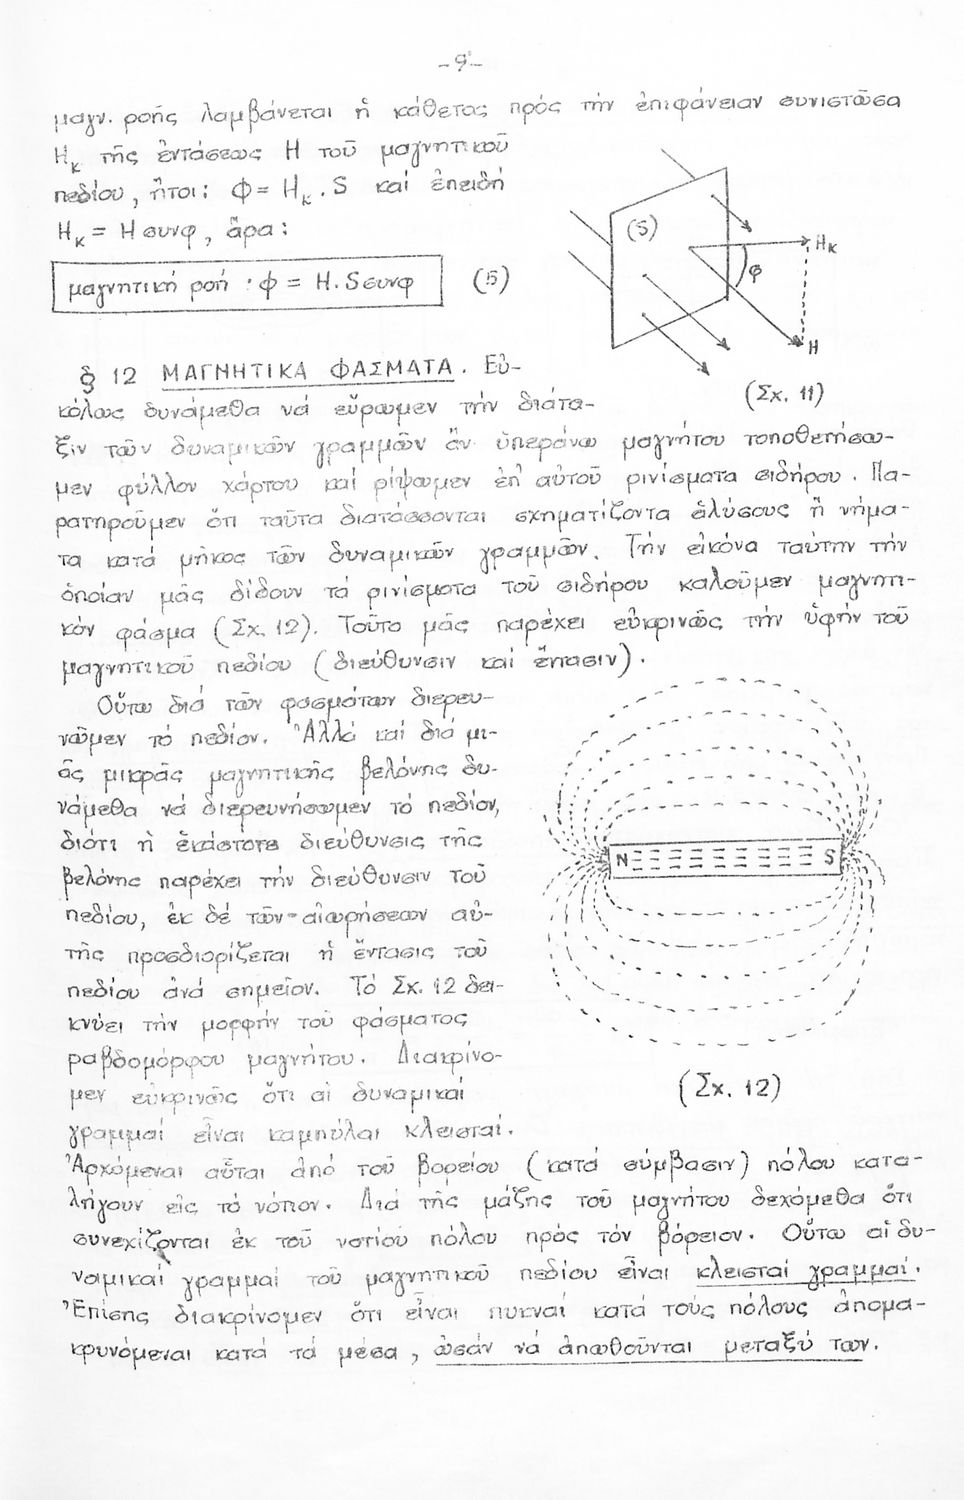 -9-
μαγν. ροῆς λαμβάνεται ἡ κάθετος πρός τήν ἐπιφάνειαν συνιστῶσα
Hκ τῆς ἐντάσεως H τοῦ μαγνητικοῦ
πεδίου, ἤτοι: φ = Hκ . S καί ἐπειδή
Hκ = H συνφ, ἄρα:
μαγνητική ροή : φ = H . S συνφ (5)
(S)
Hκ
φ
H
(Σχ. 11)
§ 12 ΜΑΓΝΗΤΙΚΑ ΦΑΣΜΑΤΑ. Εὐ-
κόλως δυνάμεθα νά εὕρωμεν τήν διάτα-
ξιν τῶν δυναμικῶν γραμμῶν ἄν ὑπεράνω μαγνήτου τοποθετήσω-
μεν φύλλον χάρτου καί ρίψωμεν ἐπ' αὐτοῦ ρινίσματα σιδήρου. Πα-
ρατηροῦμεν ὅτι ταῦτα διατάσσονται σχηματίζοντα ἁλύσους ἤ νήμα-
τα κατά μῆκος τῶν δυναμικῶν γραμμῶν. Τήν εἰκόνα ταύτην τήν
ὁποίαν μᾶς δίδουν τά ρινίσματα τοῦ σιδήρου καλοῦμεν μαγνητι-
κόν φάσμα (Σχ. 12). Τοῦτο μᾶς παρέχει εὐκρινῶς τήν ὑφήν τοῦ
μαγνητικοῦ πεδίου (διεύθυνσιν καί ἔντασιν).
Οὕτω διά τῶν φασμάτων διερευ-
νῶμεν τό πεδίον. Ἀλλά καί διά μι-
ᾶς μικρᾶς μαγνητικῆς βελόνης δυ-
νάμεθα νά διερευνήσωμεν τό πεδίον,
διότι ἡ ἑκάστοτε διεύθυνσις τῆς
βελόνης παρέχει τήν διεύθυνσιν τοῦ
πεδίου, ἐκ δέ τῶν αἰωρήσεων αὐ-
τῆς προσδιορίζεται ἡ ἔντασις τοῦ
πεδίου ἀνά σημεῖον. Τό Σχ. 12 δει-
κνύει τήν μορφήν τοῦ φάσματος
ραβδομόρφου μαγνήτου. Διακρίνο-
μεν εὐκρινῶς ὅτι αἱ δυναμικαί
γραμμαί εἶναι καμπύλαι κλεισταί.
N S
(Σχ. 12)
Ἀρχόμεναι αὗται ἀπό τοῦ βορείου (κατά σύμβασιν) πόλου κατα-
λήγουν εἰς τό νότιον. Διά τῆς μάζης τοῦ μαγνήτου δεχόμεθα ὅτι
συνεχίζονται ἐκ τοῦ νοτίου πόλου πρός τόν βόρειον. Οὕτω αἱ δυ-
ναμικαί γραμμαί τοῦ μαγνητικοῦ πεδίου εἶναι κλεισταί γραμμαί.
Ἐπίσης διακρίνομεν ὅτι εἶναι πυκναί κατά τούς πόλους ἀπομα-
κρυνόμεναι κατά τά μέσα, ὡσάν νά ἀπωθοῦνται μεταξύ των.